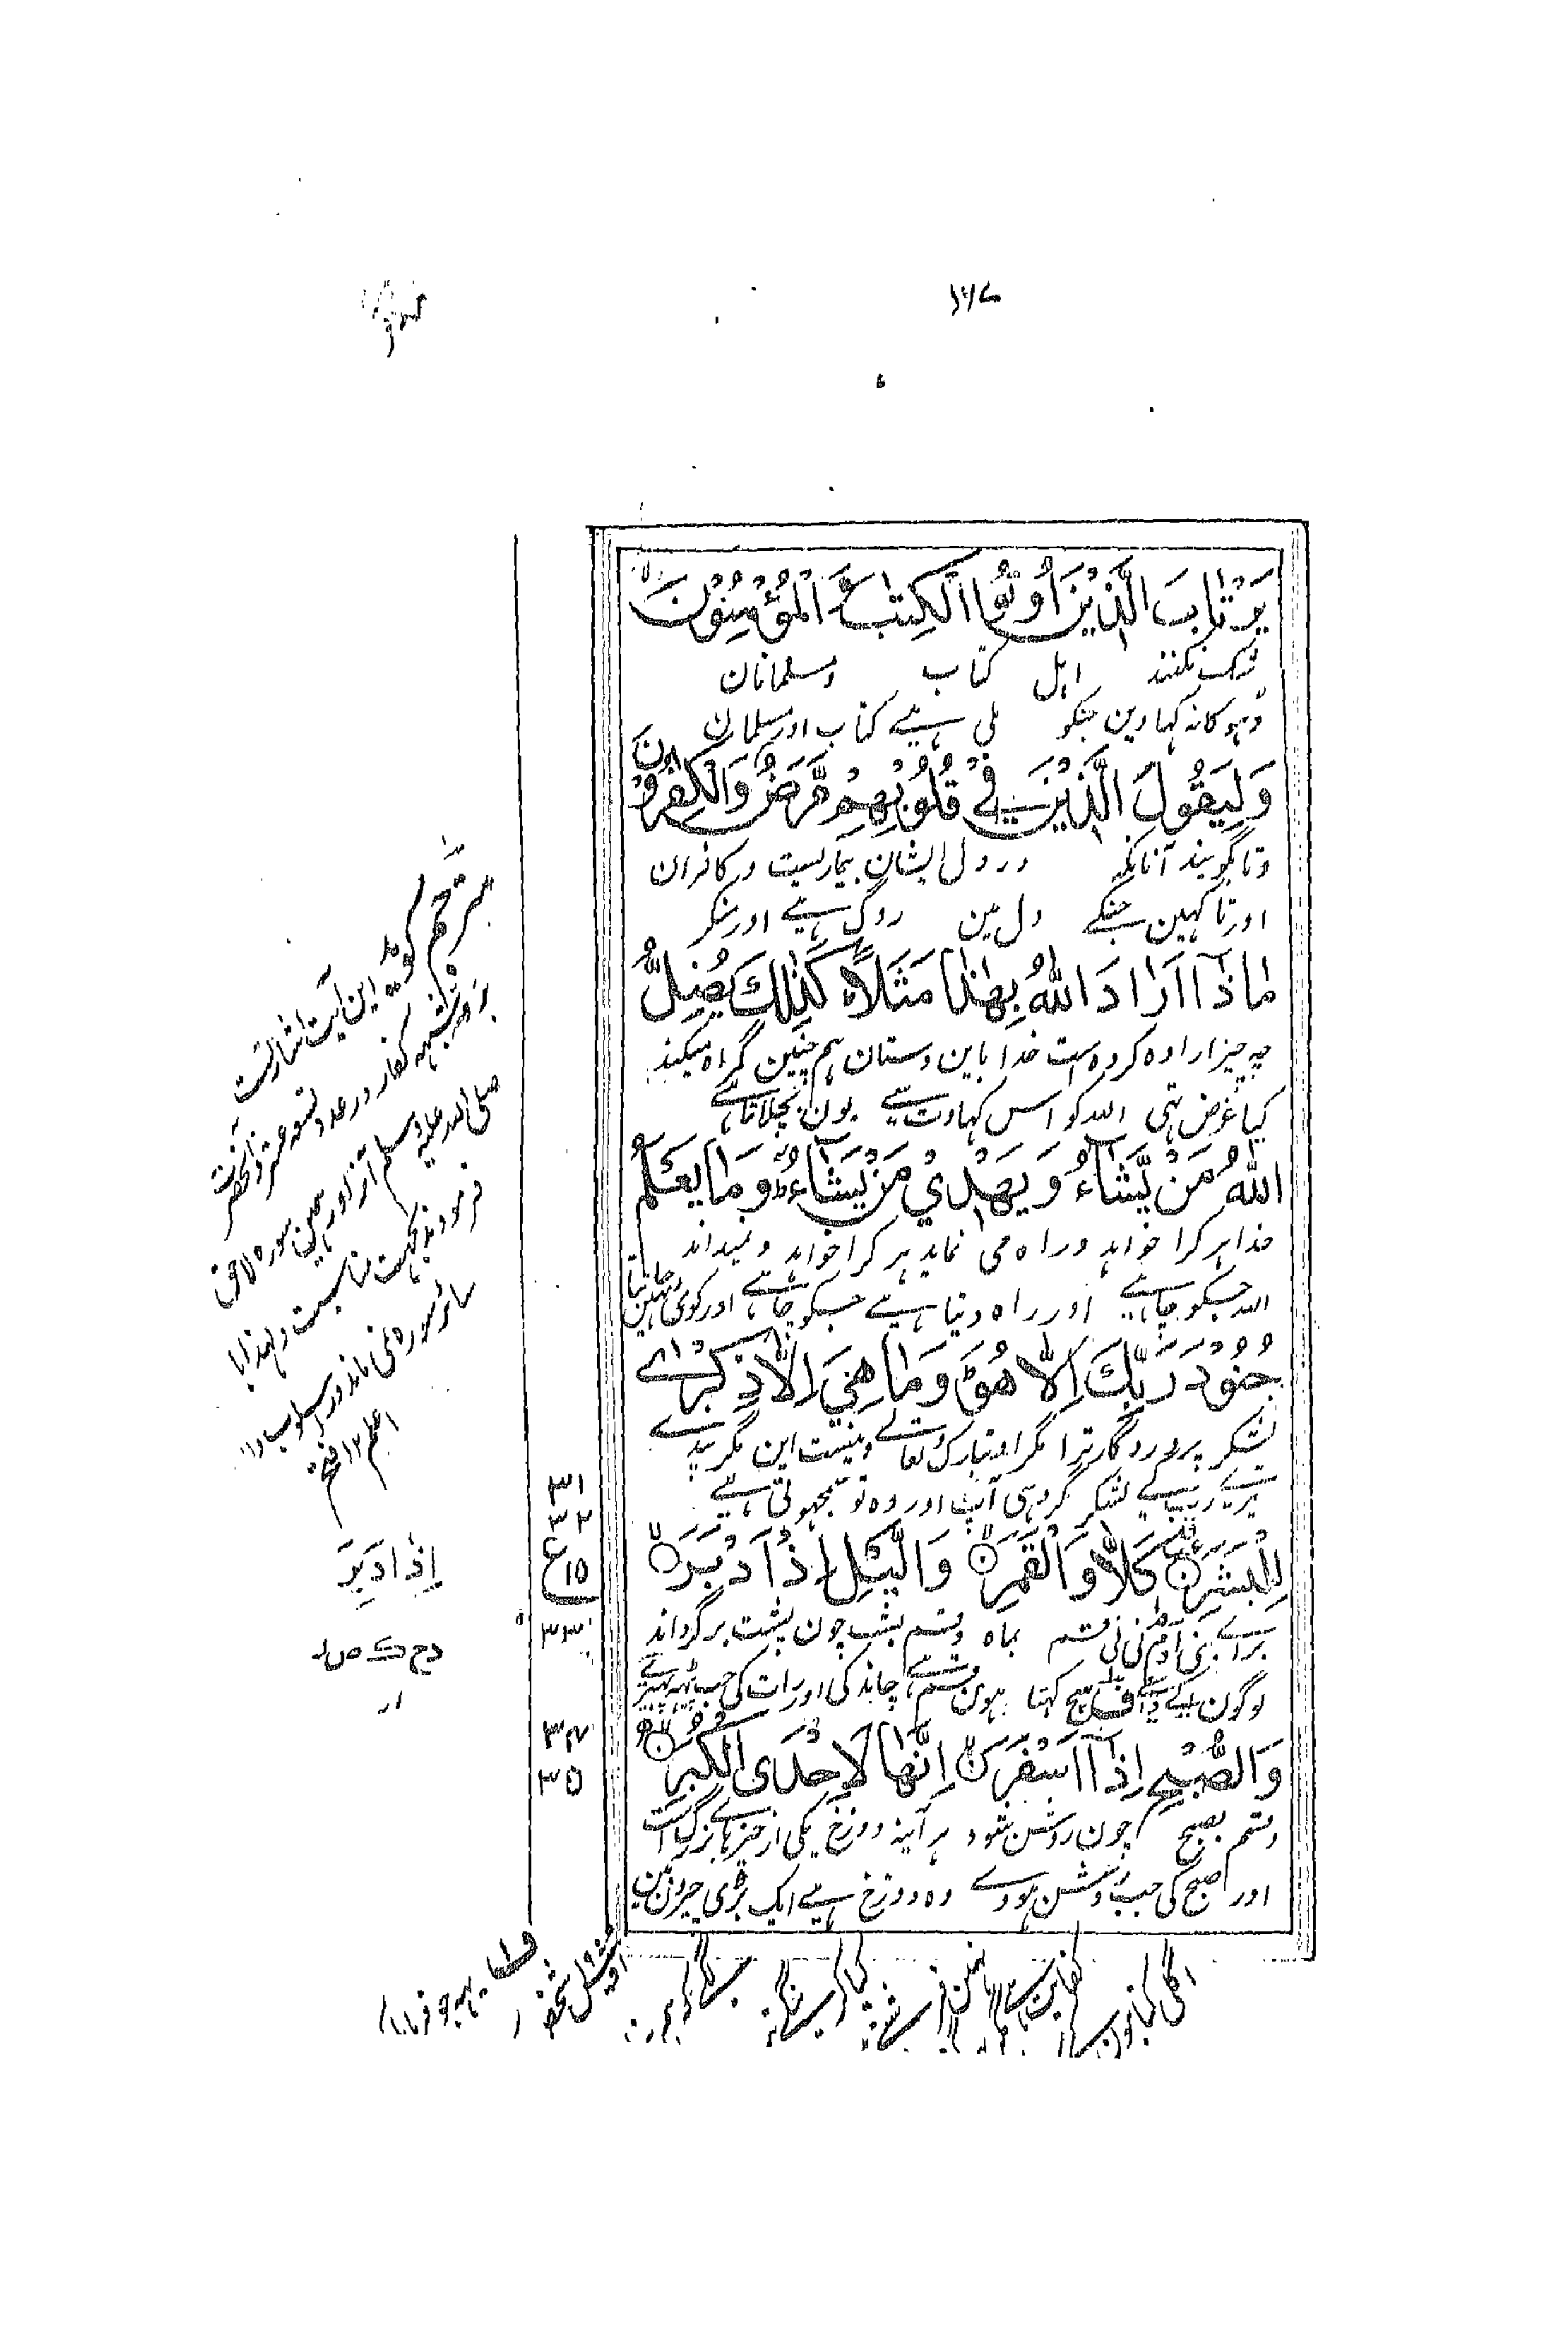 ۱۶۷
يَرْتَابَ الَّذِيْنَ اُوْتُوا الْكِتٰبَ وَ الْمُؤْمِنُوْنَ
شک نکنند اہل کتاب و مسلمانان
دہوکا نہ کہاوین جنکو ملی ہے کتاب اور مسلمان
وَلِيَقُوْلَ الَّذِيْنَ فِيْ قُلُوْبِهِمْ مَّرَضٌ وَّالْكٰفِرُوْنَ
و تا گویند آنانکہ در دل ایشان بیماریست و کافران
اور تا کہین جنکے دل مین روگ ہے اور منکر
مَاذَآ اَرَادَ اللّٰهُ بِهٰذَا مَثَلًا كَذٰلِكَ يُضِلُّ
چہ چیز ارادہ کردہ است خدا باین داستان ہم چنین گمراہ میکند
کیا غرض تہی اللہ کو اس کہاوت سے یون بچلاتا ہے
اللّٰهُ مَنْ يَّشَآءُ وَيَهْدِيْ مَنْ يَّشَآءُ وَمَا يَعْلَمُ
خدا ہر کرا خواہد و راہ می نماید ہر کرا خواہد و نمیداند
اللہ جسکو چاہے اور راہ دیتا ہے جسکو چاہے اور کوئی نہین جانتا
جُنُوْدَ رَبِّكَ اِلَّا هُوَ وَمَا هِيَ اِلَّا ذِكْرٰى
لشکر پروردگار ترا مگر او تبارک و تعالے و نیست این مگر پندے
تیرے رب کے لشکر مگر وہی آپ اور وہ تو سمجہوتی ہے
لِلْبَشَرِ كَلَّا وَالْقَمَرِ وَالَّيْلِ اِذْ اَدْبَرَ
براے بنی آدم نی نی قسم بماہ و قسم بشب چون پشت برگرداند
لوگون کے واسطے سچ کہتا ہون قسم ہے چاند کی اور رات کی جب پیٹہ پہیرے
وَالصُّبْحِ اِذَآ اَسْفَرَ اِنَّهَا لَاِحْدَى الْكُبَرِ
و قسم بصبح چون روشن شود ہر آئینہ دوزخ یکی از چیزہاے بزرگ است
اور صبح کی جب روشن ہووے وہ دوزخ ہے ایک بڑی چیزون مین
۳۱
۳۲
ع ۱۵
۳۳
۳۴
۳۵
مترجم گوید این آیت اشارتست
کفار در عدد تسعہ عشر و آنحضرت
صلی اللہ علیہ وسلم
فرمودند بجہت مناسبت
اعلم ۱۲ فتح
اِذَا دَبَرَ